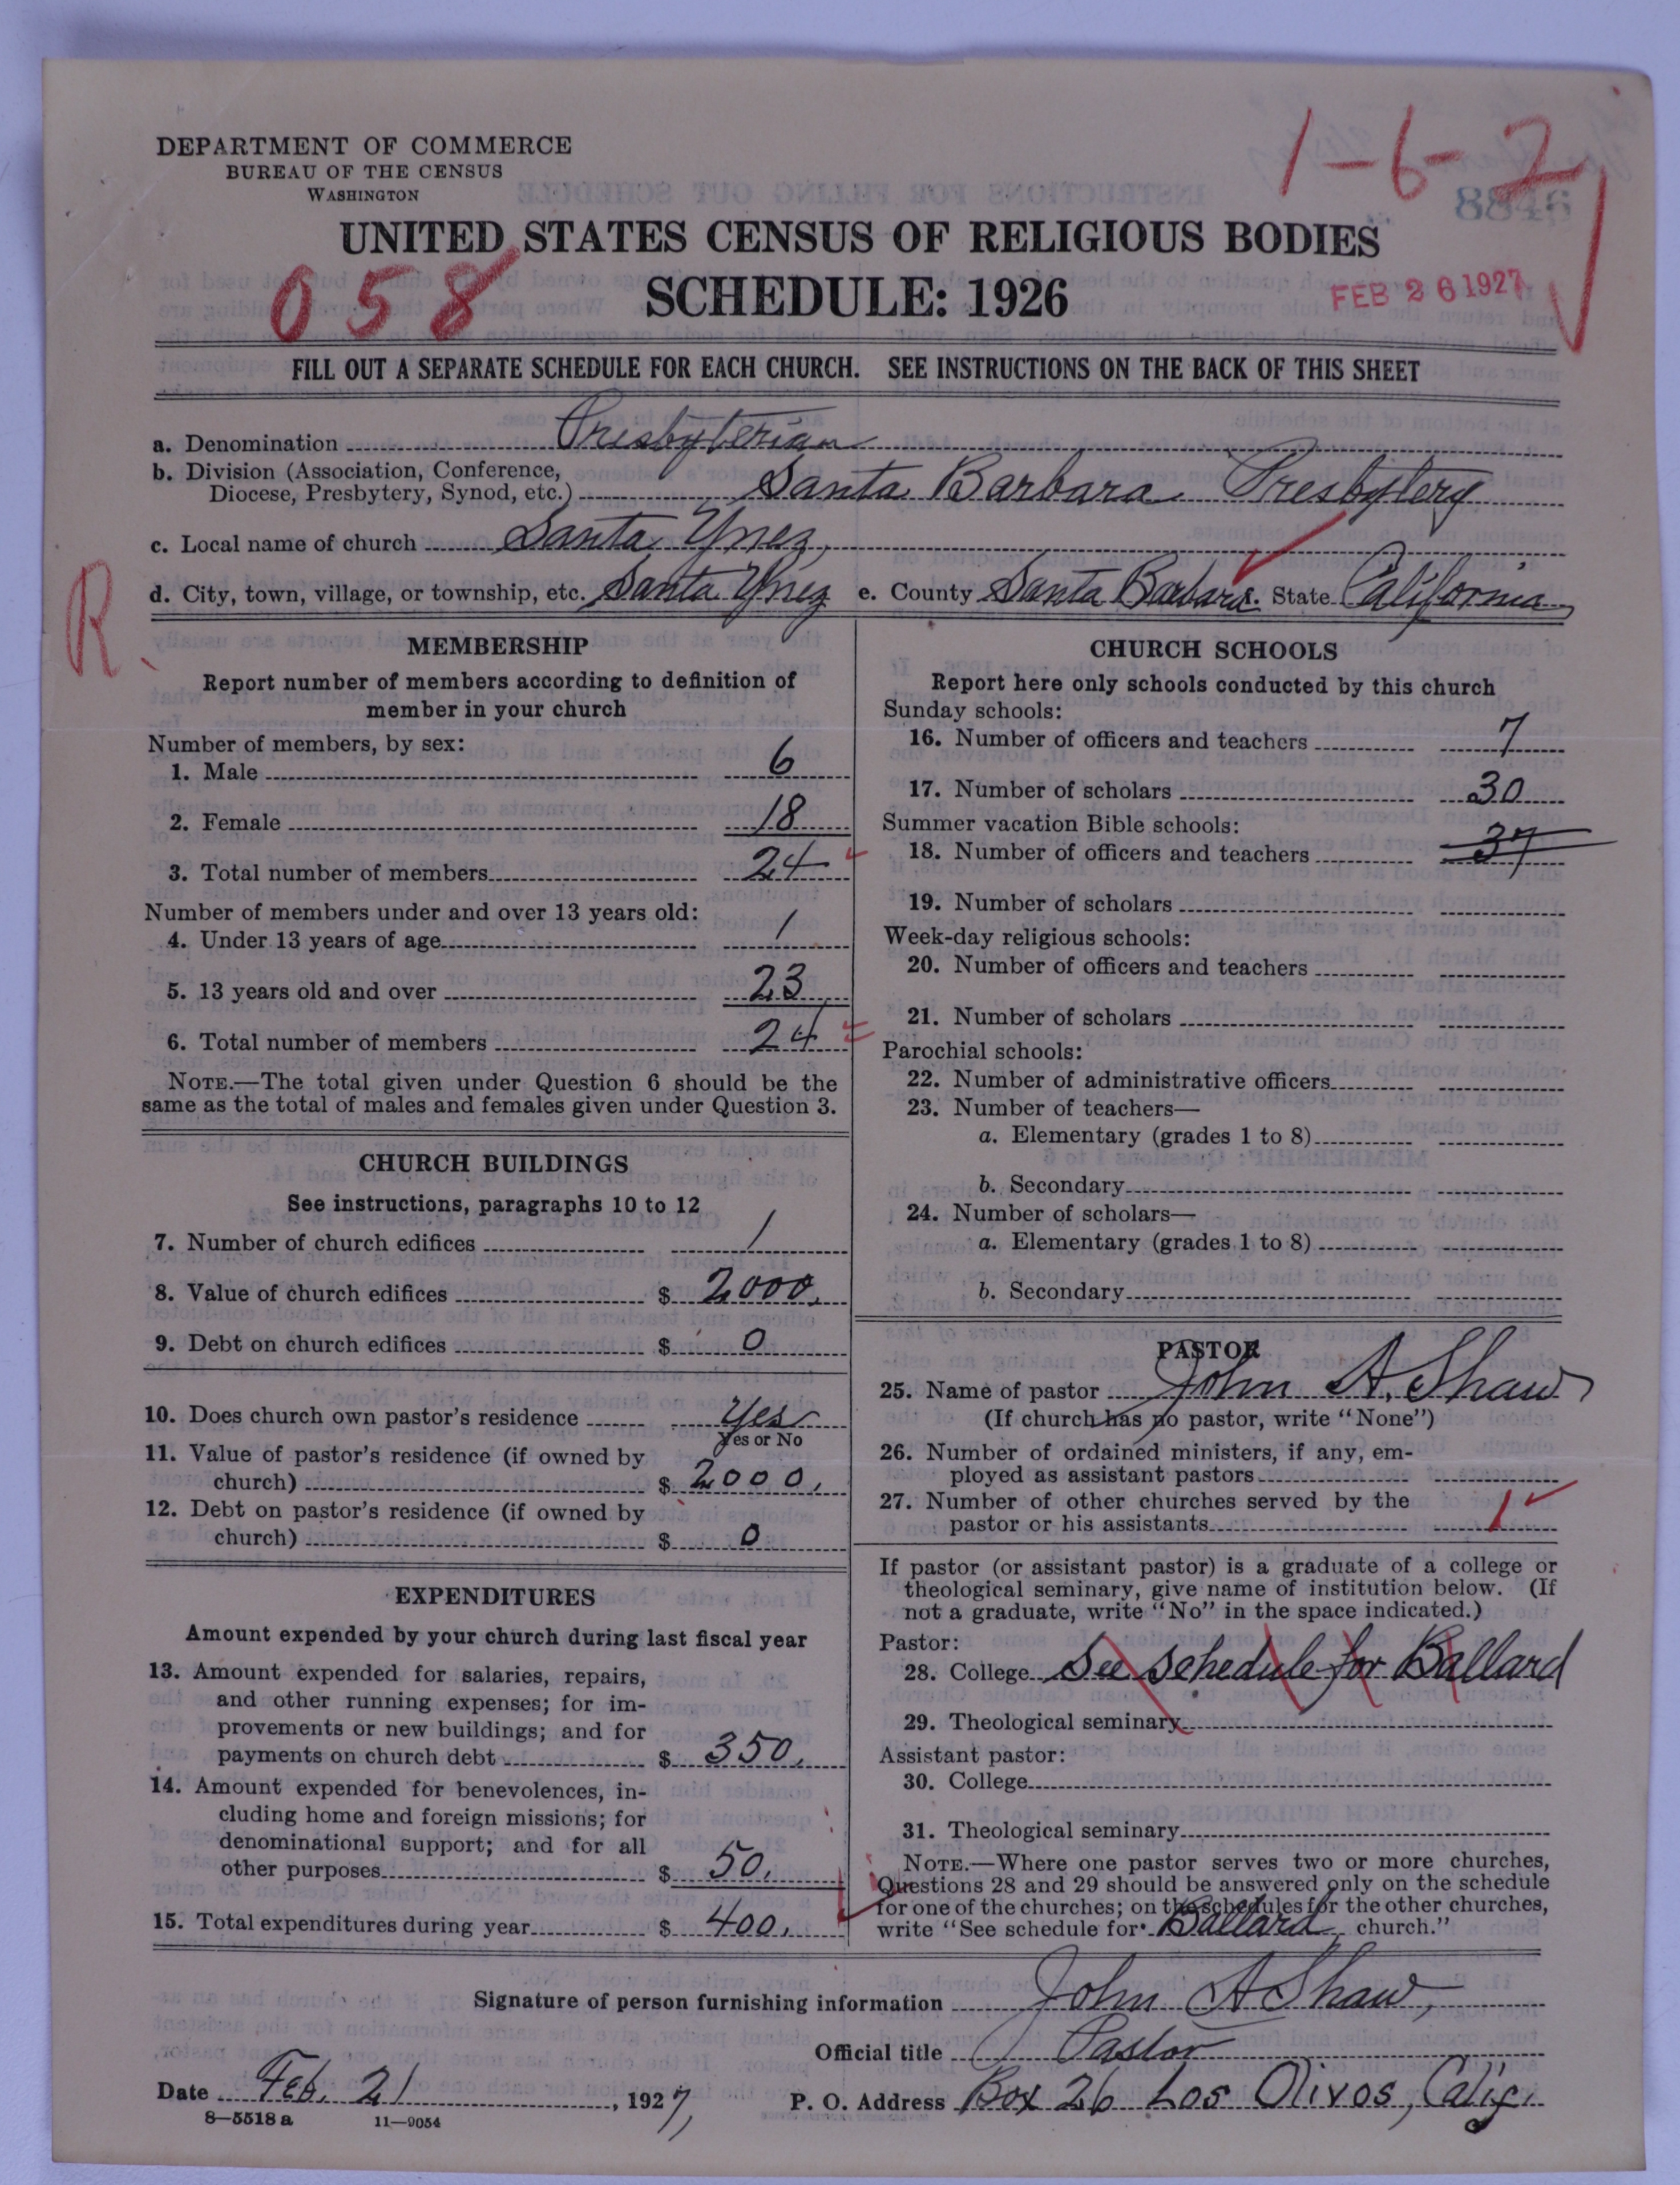 DEPARTMENT OF COMMERCE
BUREAU OF THE CENSUS
WASHINGTON
1-6-2
8846
UNITED STATES CENSUS OF RELIGIOUS BODIES
058
SCHEDULE: 1926
FEB 26 1927
FILL OUT A SEPARATE SCHEDULE FOR EACH CHURCH. SEE INSTRUCTIONS ON THE BACK OF THIS SHEET
a. Denomination Presbyterian
b. Division (Association, Conference,
Diocese, Presbytery, Synod, etc.) Santa Barbara Presbytery
c. Local name of church Santa Ynez,
R.
d. City, town, village, or township, etc. Santa Ynez e. County Santa Barbara f. State California
MEMBERSHIP
Report number of members according to definition of
member in your church
Number of members, by sex:
1. Male 6
2. Female 18
3. Total number of members 24
Number of members under and over 13 years old:
4. Under 13 years of age 1
5. 13 years old and over 23
6. Total number of members 24
NOTE.—The total given under Question 6 should be the
same as the total of males and females given under Question 3.
CHURCH BUILDINGS
See instructions, paragraphs 10 to 12
7. Number of church edifices 1
8. Value of church edifices $ 2000.
9. Debt on church edifices $ 0
10. Does church own pastor's residence Yes
Yes or No
11. Value of pastor's residence (if owned by
church) $ 2000.
12. Debt on pastor's residence (if owned by
church) $ 0
EXPENDITURES
Amount expended by your church during last fiscal year
13. Amount expended for salaries, repairs,
and other running expenses; for im-
provements or new buildings; and for
payments on church debt $ 350.
14. Amount expended for benevolences, in-
cluding home and foreign missions; for
denominational support; and for all
other purposes $ 50.
15. Total expenditures during year $ 400.
CHURCH SCHOOLS
Report here only schools conducted by this church
Sunday schools:
16. Number of officers and teachers 7
17. Number of scholars 30
Summer vacation Bible schools:
18. Number of officers and teachers 37
19. Number of scholars
Week-day religious schools:
20. Number of officers and teachers
21. Number of scholars
Parochial schools:
22. Number of administrative officers
23. Number of teachers—
a. Elementary (grades 1 to 8)
b. Secondary
24. Number of scholars—
a. Elementary (grades 1 to 8)
b. Secondary
PASTOR
25. Name of pastor John A. Shaw
(If church has no pastor, write "None")
26. Number of ordained ministers, if any, em-
ployed as assistant pastors
27. Number of other churches served by the
pastor or his assistants 1
If pastor (or assistant pastor) is a graduate of a college or
theological seminary, give name of institution below. (If
not a graduate, write "No" in the space indicated.)
Pastor:
28. College See schedule for Ballard
29. Theological seminary
Assistant pastor:
30. College
31. Theological seminary
NOTE.—Where one pastor serves two or more churches,
Questions 28 and 29 should be answered only on the schedule
for one of the churches; on the schedules for the other churches,
write "See schedule for Ballard church."
Signature of person furnishing information John A Shaw,
Official title Pastor
Date Feb. 21, 1927, P. O. Address Box 26 Los Olivos, Calif.
8—5518 a 11—9054